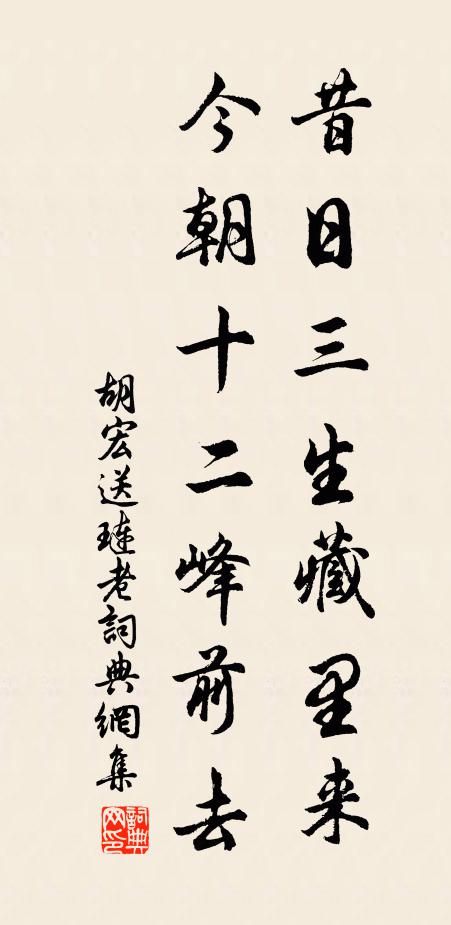 昔日三生藏里来
今朝十二峰前去
胡宏送琏老詞典網集
詞典网印